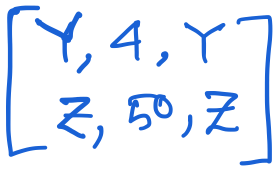 [Y, 4, Y
Z, 50, Z]